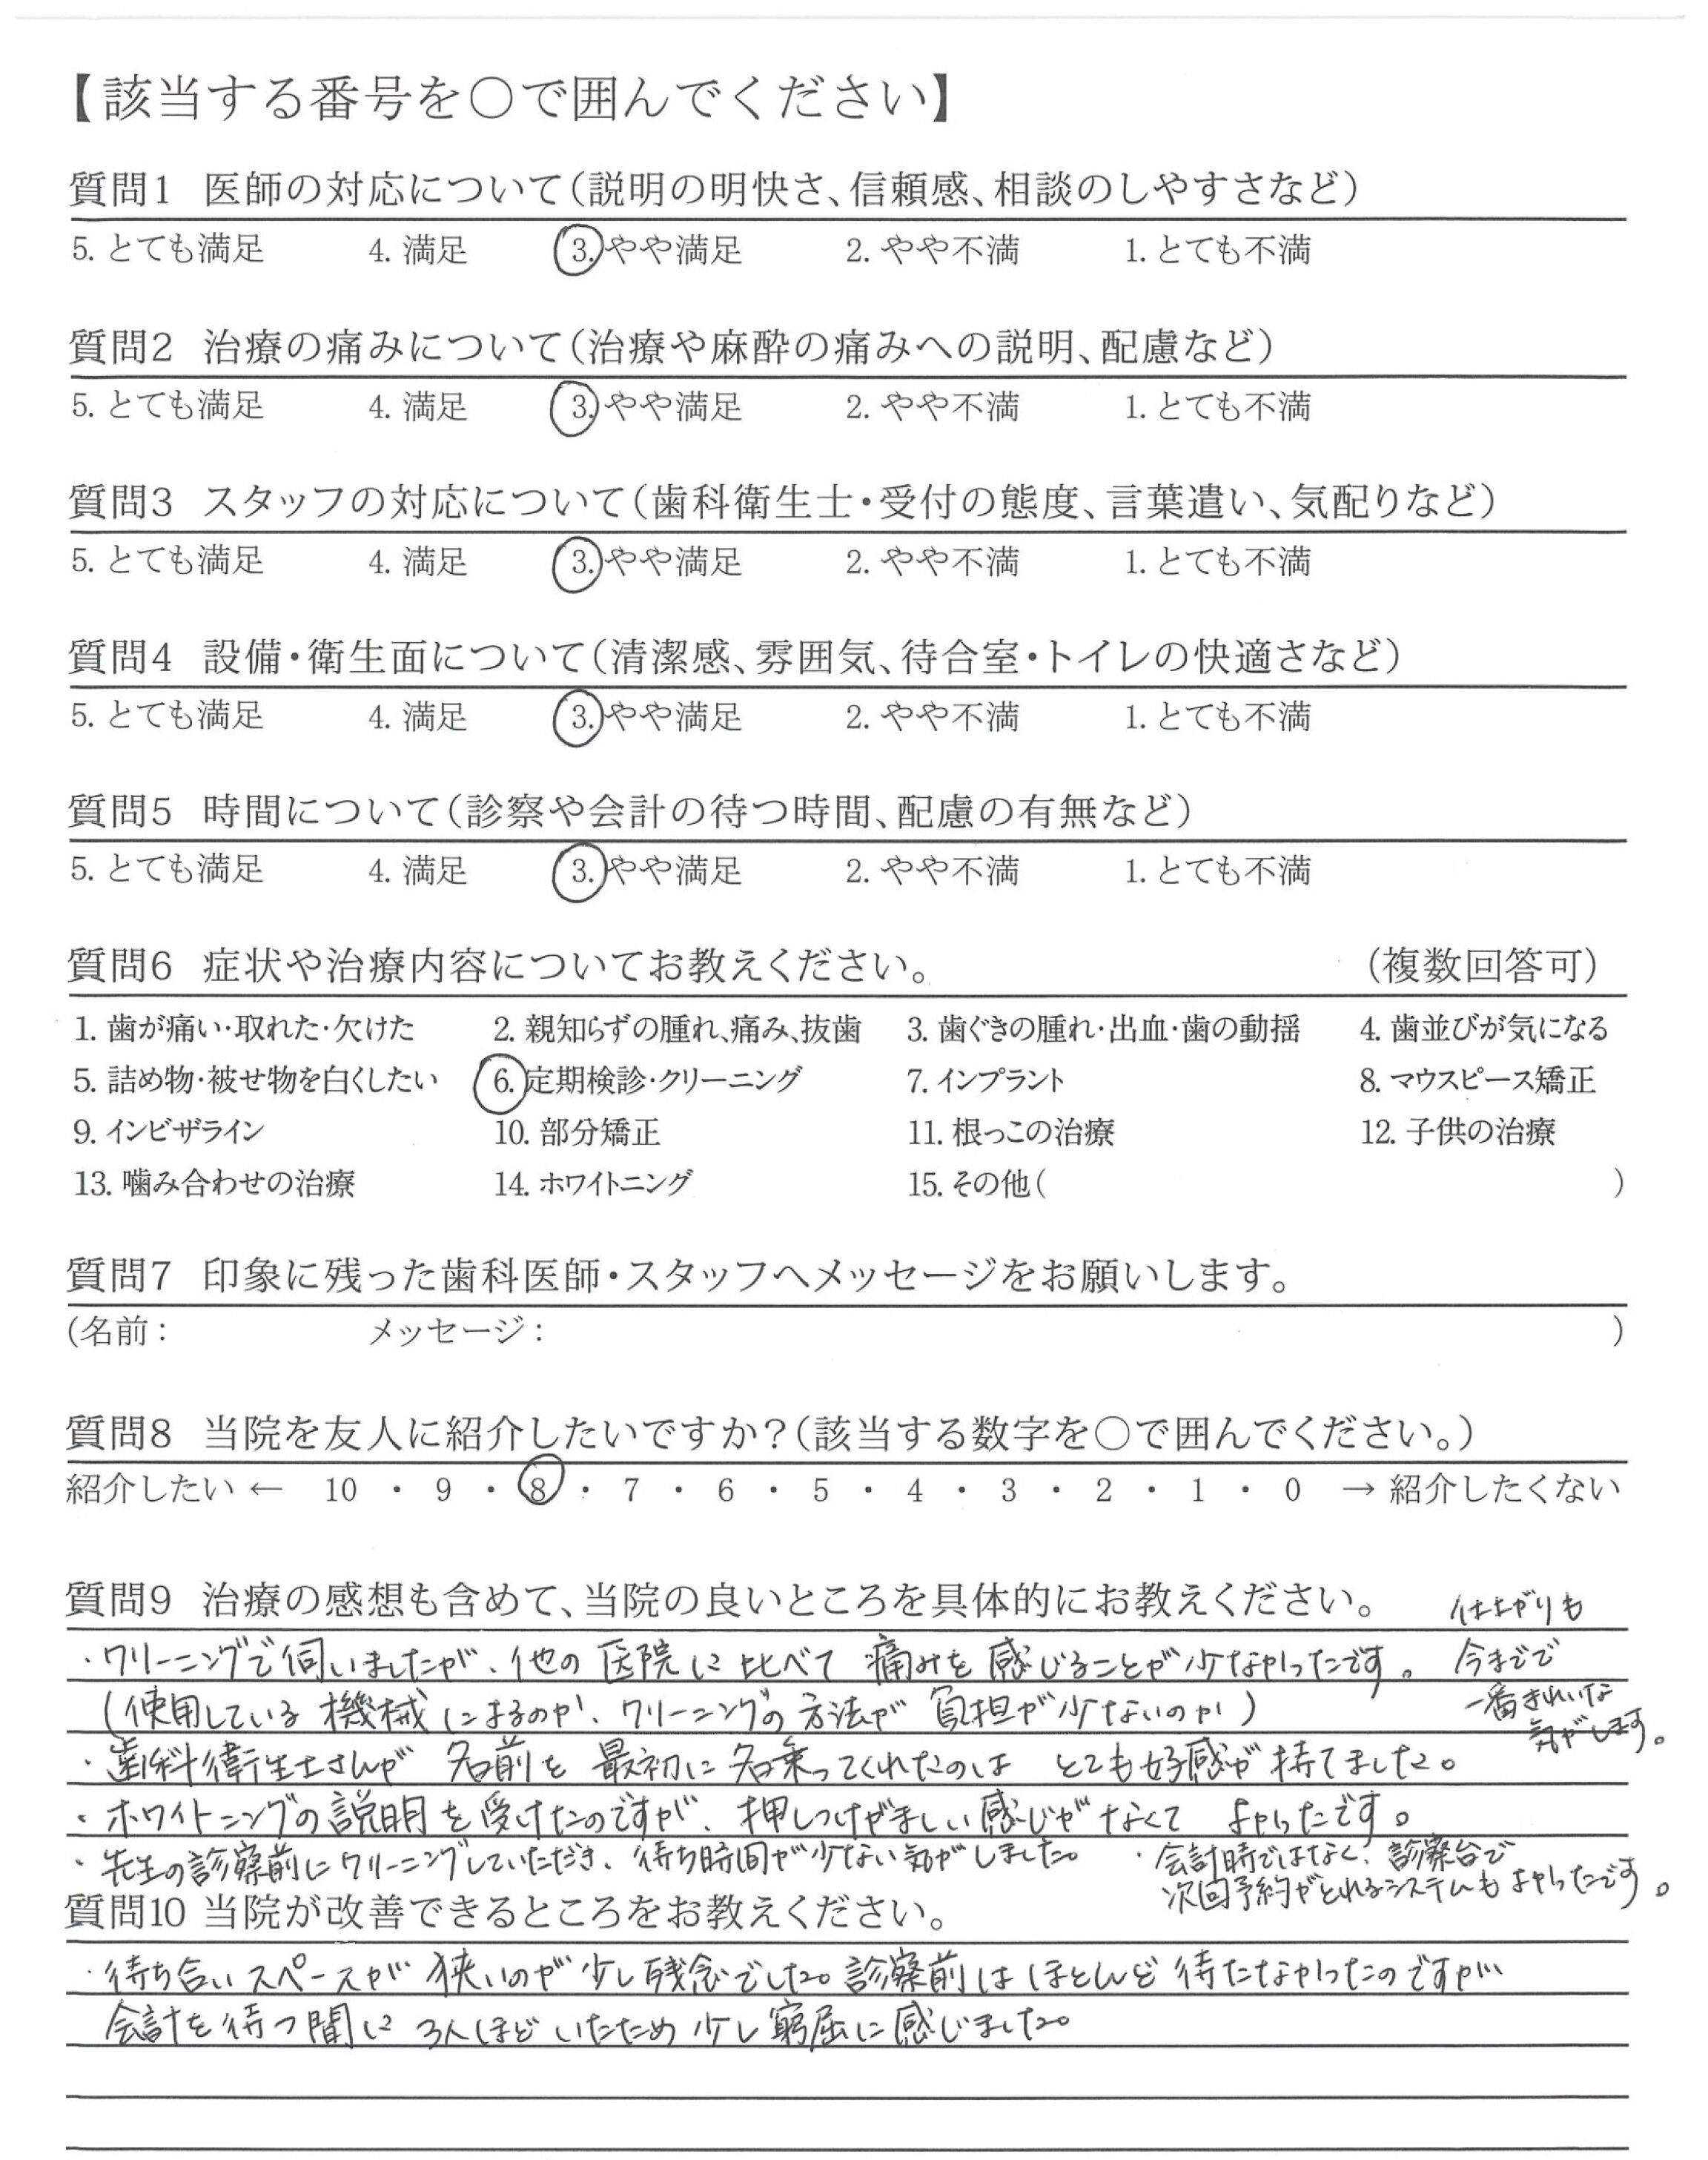 【該当する番号を○で囲んでください】
質問1 医師の対応について(説明の明快さ、信頼感、相談のしやすさなど)
5. とても満足 4. 満足 3. やや満足 2. やや不満 1. とても不満
質問2 治療の痛みについて(治療や麻酔の痛みへの説明、配慮など)
5. とても満足 4. 満足 3. やや満足 2. やや不満 1. とても不満
質問3 スタッフの対応について(歯科衛生士・受付の態度、言葉遣い、気配りなど)
5. とても満足 4. 満足 3. やや満足 2. やや不満 1. とても不満
質問4 設備・衛生面について(清潔感、雰囲気、待合室・トイレの快適さなど)
5. とても満足 4. 満足 3. やや満足 2. やや不満 1. とても不満
質問5 時間について(診察や会計の待つ時間、配慮の有無など)
5. とても満足 4. 満足 3. やや満足 2. やや不満 1. とても不満
質問6 症状や治療内容についてお教えください。 (複数回答可)
1. 歯が痛い・取れた・欠けた 2. 親知らずの腫れ、痛み、抜歯 3. 歯ぐきの腫れ・出血・歯の動揺 4. 歯並びが気になる
5. 詰め物・被せ物を白くしたい 6. 定期検診・クリーニング 7. インプラント 8. マウスピース矯正
9. インビザライン 10. 部分矯正 11. 根っこの治療 12. 子供の治療
13. 噛み合わせの治療 14. ホワイトニング 15. その他( )
質問7 印象に残った歯科医師・スタッフへメッセージをお願いします。
(名前: メッセージ: )
質問8 当院を友人に紹介したいですか?(該当する数字を○で囲んでください。)
紹介したい ← 10 ・ 9 ・ 8 ・ 7 ・ 6 ・ 5 ・ 4 ・ 3 ・ 2 ・ 1 ・ 0 → 紹介したくない
質問9 治療の感想も含めて、当院の良いところを具体的にお教えください。
・クリーニングで伺いましたが、他の医院に比べて痛みを感じることが少なかったです。
仕上がりも
今までで
一番きれいな
気がします。
(使用している機械によるのか、クリーニングの方法が負担が少ないのか)
・歯科衛生士さんが名前を最初に名乗ってくれたのはとても好感が持てました。
・ホワイトニングの説明を受けたのですが、押しつけがましい感じがなくてよかったです。
・先生の診察前にクリーニングしていただき、待ち時間が少ない気がしました。
・会計時ではなく、診察台で
次回予約がとれるシステムもよかったです。
質問10 当院が改善できるところをお教えください。
・待ち合いスペースが狭いのが少し残念でした。診察前はほとんど待たなかったのですが
会計を待つ間に3人ほどいたため少し窮屈に感じました。